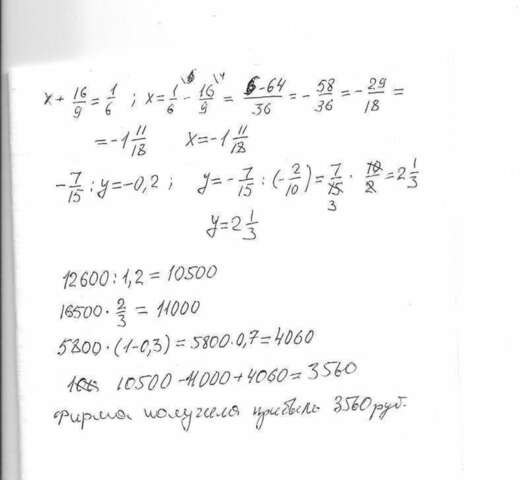 x + 16/9 = 1/6 ; x = 1/6 \6 - 16/9 \4 = 6-64/36 = - 58/36 = - 29/18 =
= -1 11/18 x = -1 11/18
- 7/15 : y = -0,2 ; y = - 7/15 : (- 2/10) = 7/15 3 · 10/2 = 2 1/3
y = 2 1/3
12600 : 1,2 = 10500
16500 · 2/3 = 11000
5800 · (1-0,3) = 5800·0,7 = 4060
10500 - 11000 + 4060 = 3560
Фирма получила прибыль 3560 руб.